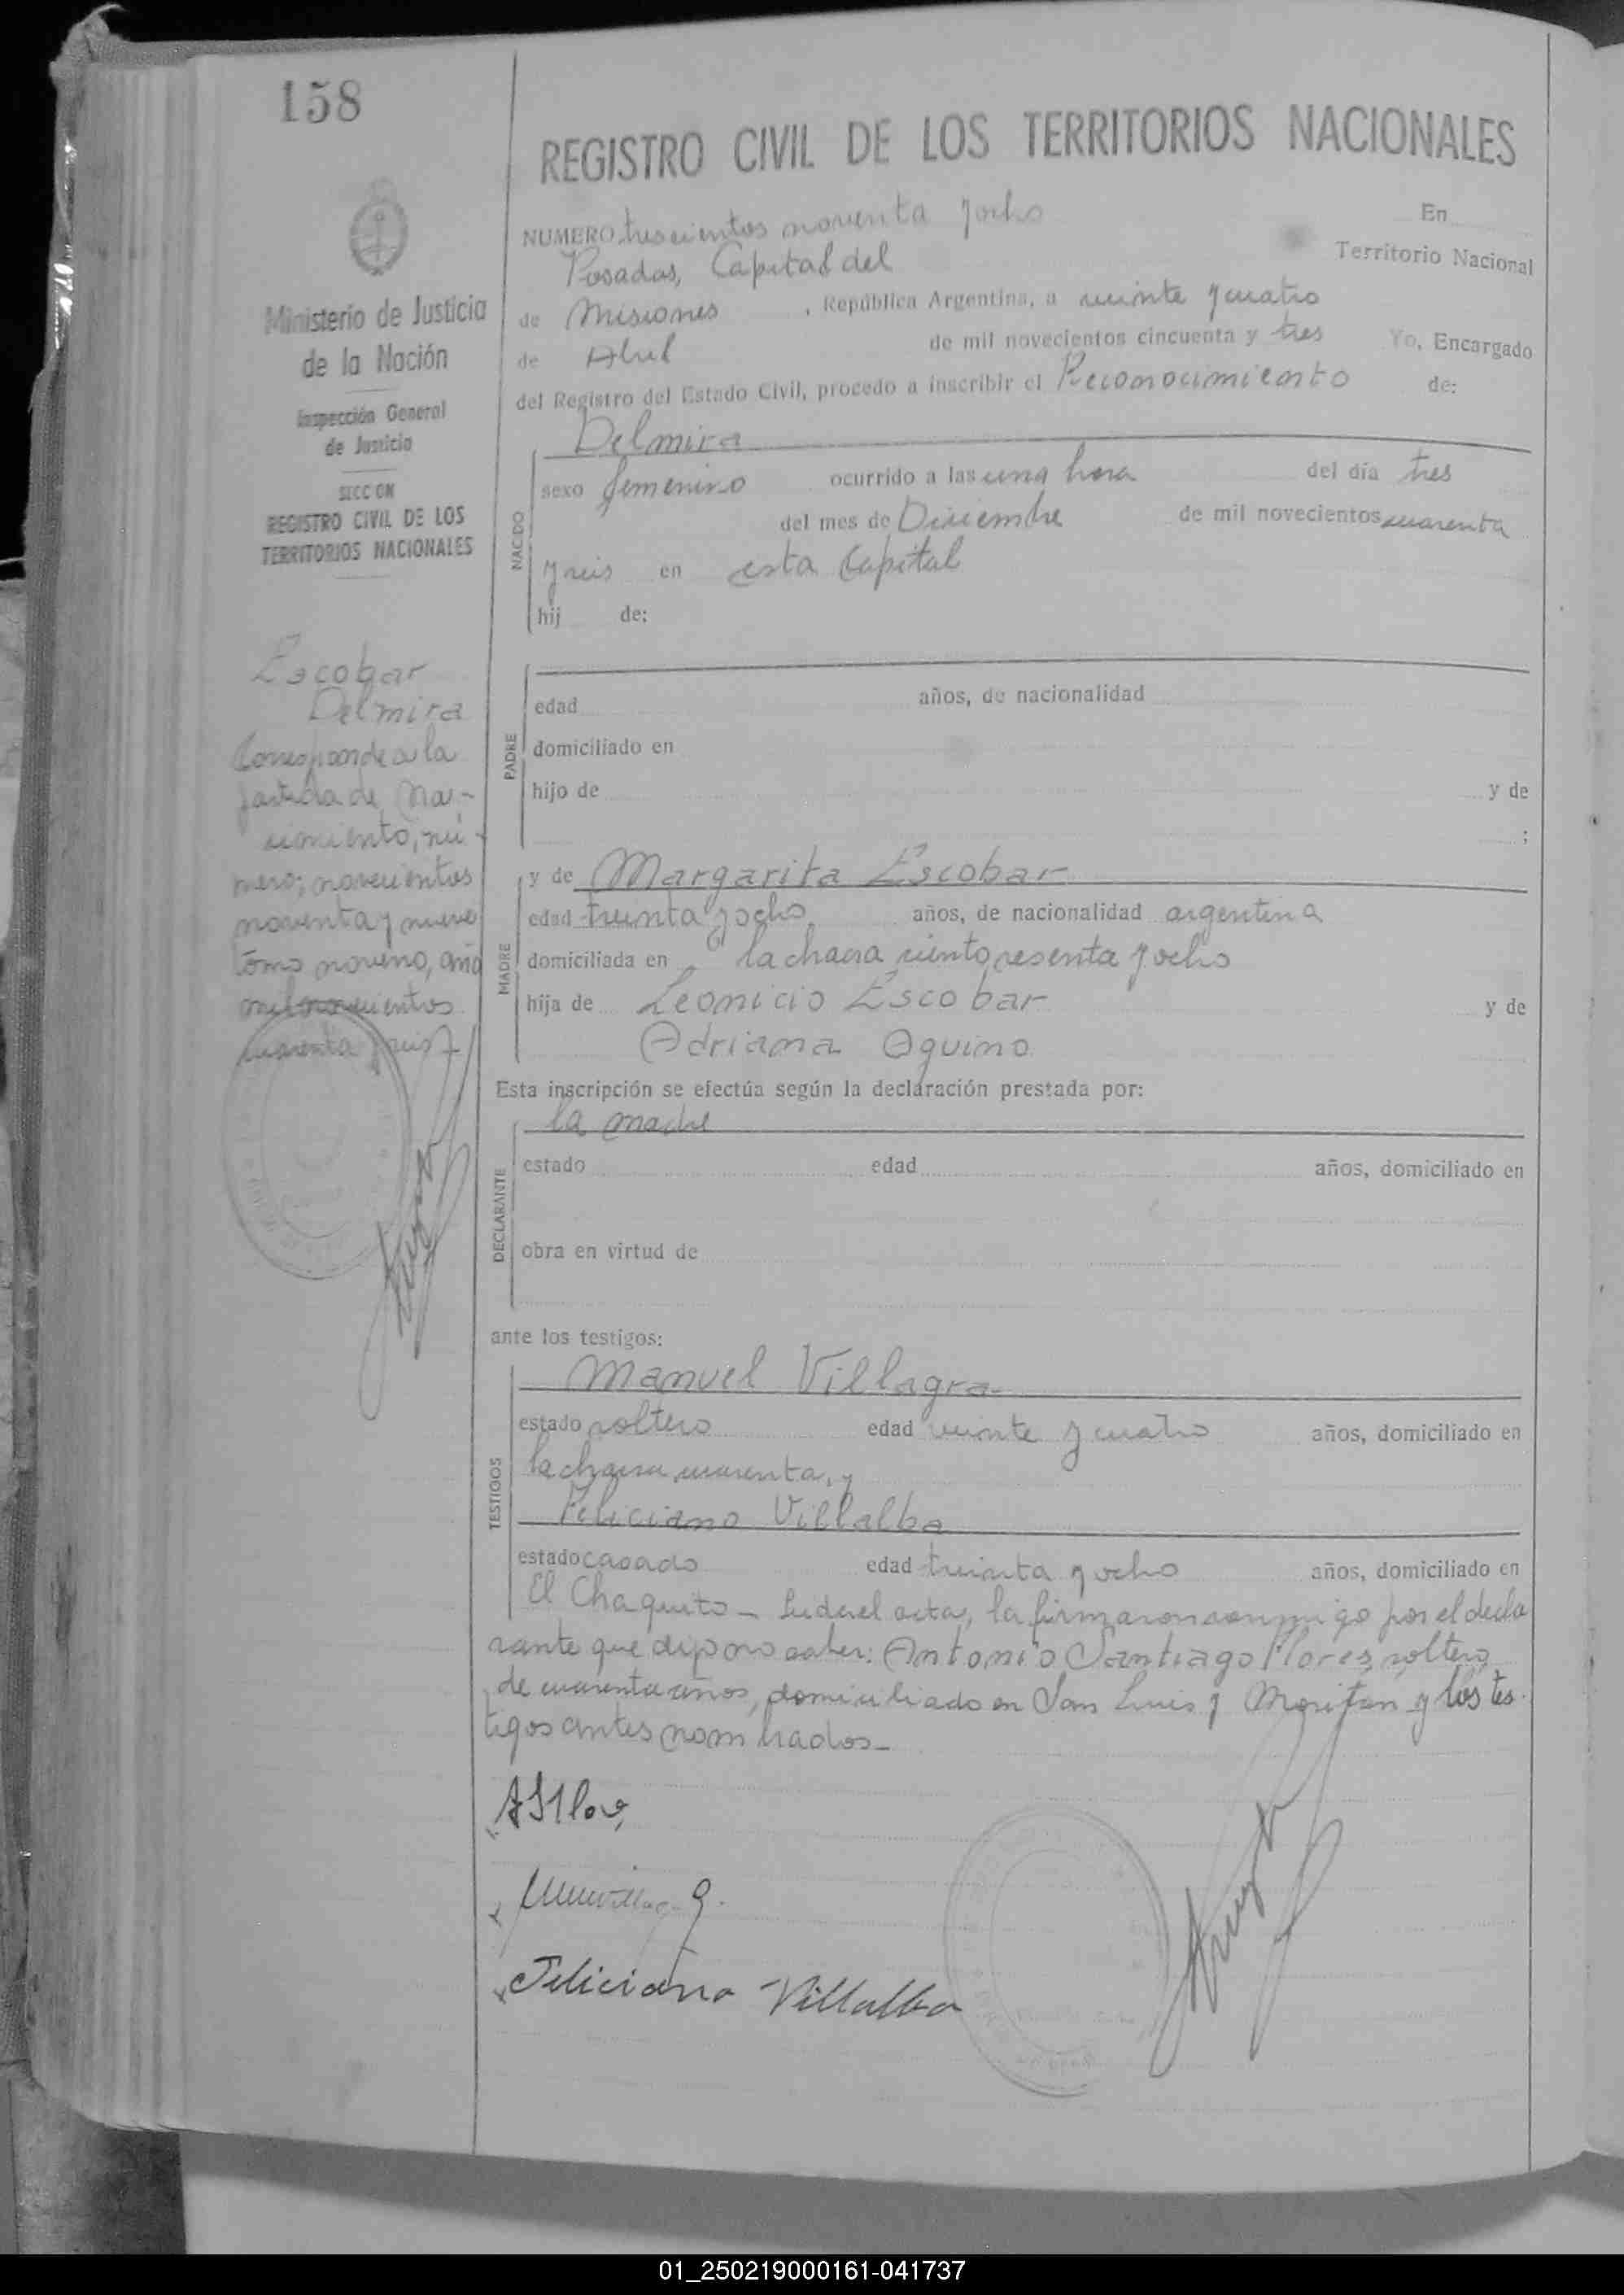 158
REGISTRO CIVIL DE LOS TERRITORIOS NACIONALES
Ministerio de Justicia
de la Nación
Inspección General
de Justicia
SECCION
REGISTRO CIVIL DE LOS
TERRITORIOS NACIONALES
Escobar
Delmira
Corresponde a la
partida de Na-
cimiento, nú-
mero; novecientos
noventa y nueve
tomo noveno, año
mil novecientos
cuarenta y seis
NUMERO trescientos noventa y ocho En
Posadas, Capital del Territorio Nacional
de Misiones, República Argentina, a veinte y cuatro
de Abril de mil novecientos cincuenta y tres Yo, Encargado
del Registro del Estado Civil, procedo a inscribir el Reconocimiento de:
NACIDO
Delmira
sexo femenino ocurrido a las una hora del día tres
del mes de Diciembre de mil novecientos cuarenta
y seis en esta Capital
hij de:
PADRE
edad años, de nacionalidad
domiciliado en
hijo de y de
;
MADRE
y de Margarita Escobar
edad treinta y ocho años, de nacionalidad argentina
domiciliada en la chacra ciento sesenta y ocho
hija de Leonicio Escobar y de
Adriana Aquino
Esta inscripción se efectúa según la declaración prestada por:
DECLARANTE
la madre
estado edad años, domiciliado en
obra en virtud de
ante los testigos:
TESTIGOS
Manuel Villagra
estado soltero edad veinte y cuatro años, domiciliado en
la chacra cuarenta, y
Feliciano Villalba
estado casado edad treinta y ocho años, domiciliado en
El Chaquito - Leida el acta, la firmaron conmigo por el decla
rante que dijo no saber: Antonio Santiago Flores, soltero,
de cuarenta años, domiciliado en San Luis y y los tes
tigos antes nombrados-
Feliciano Villalba
01_250219000161-041737